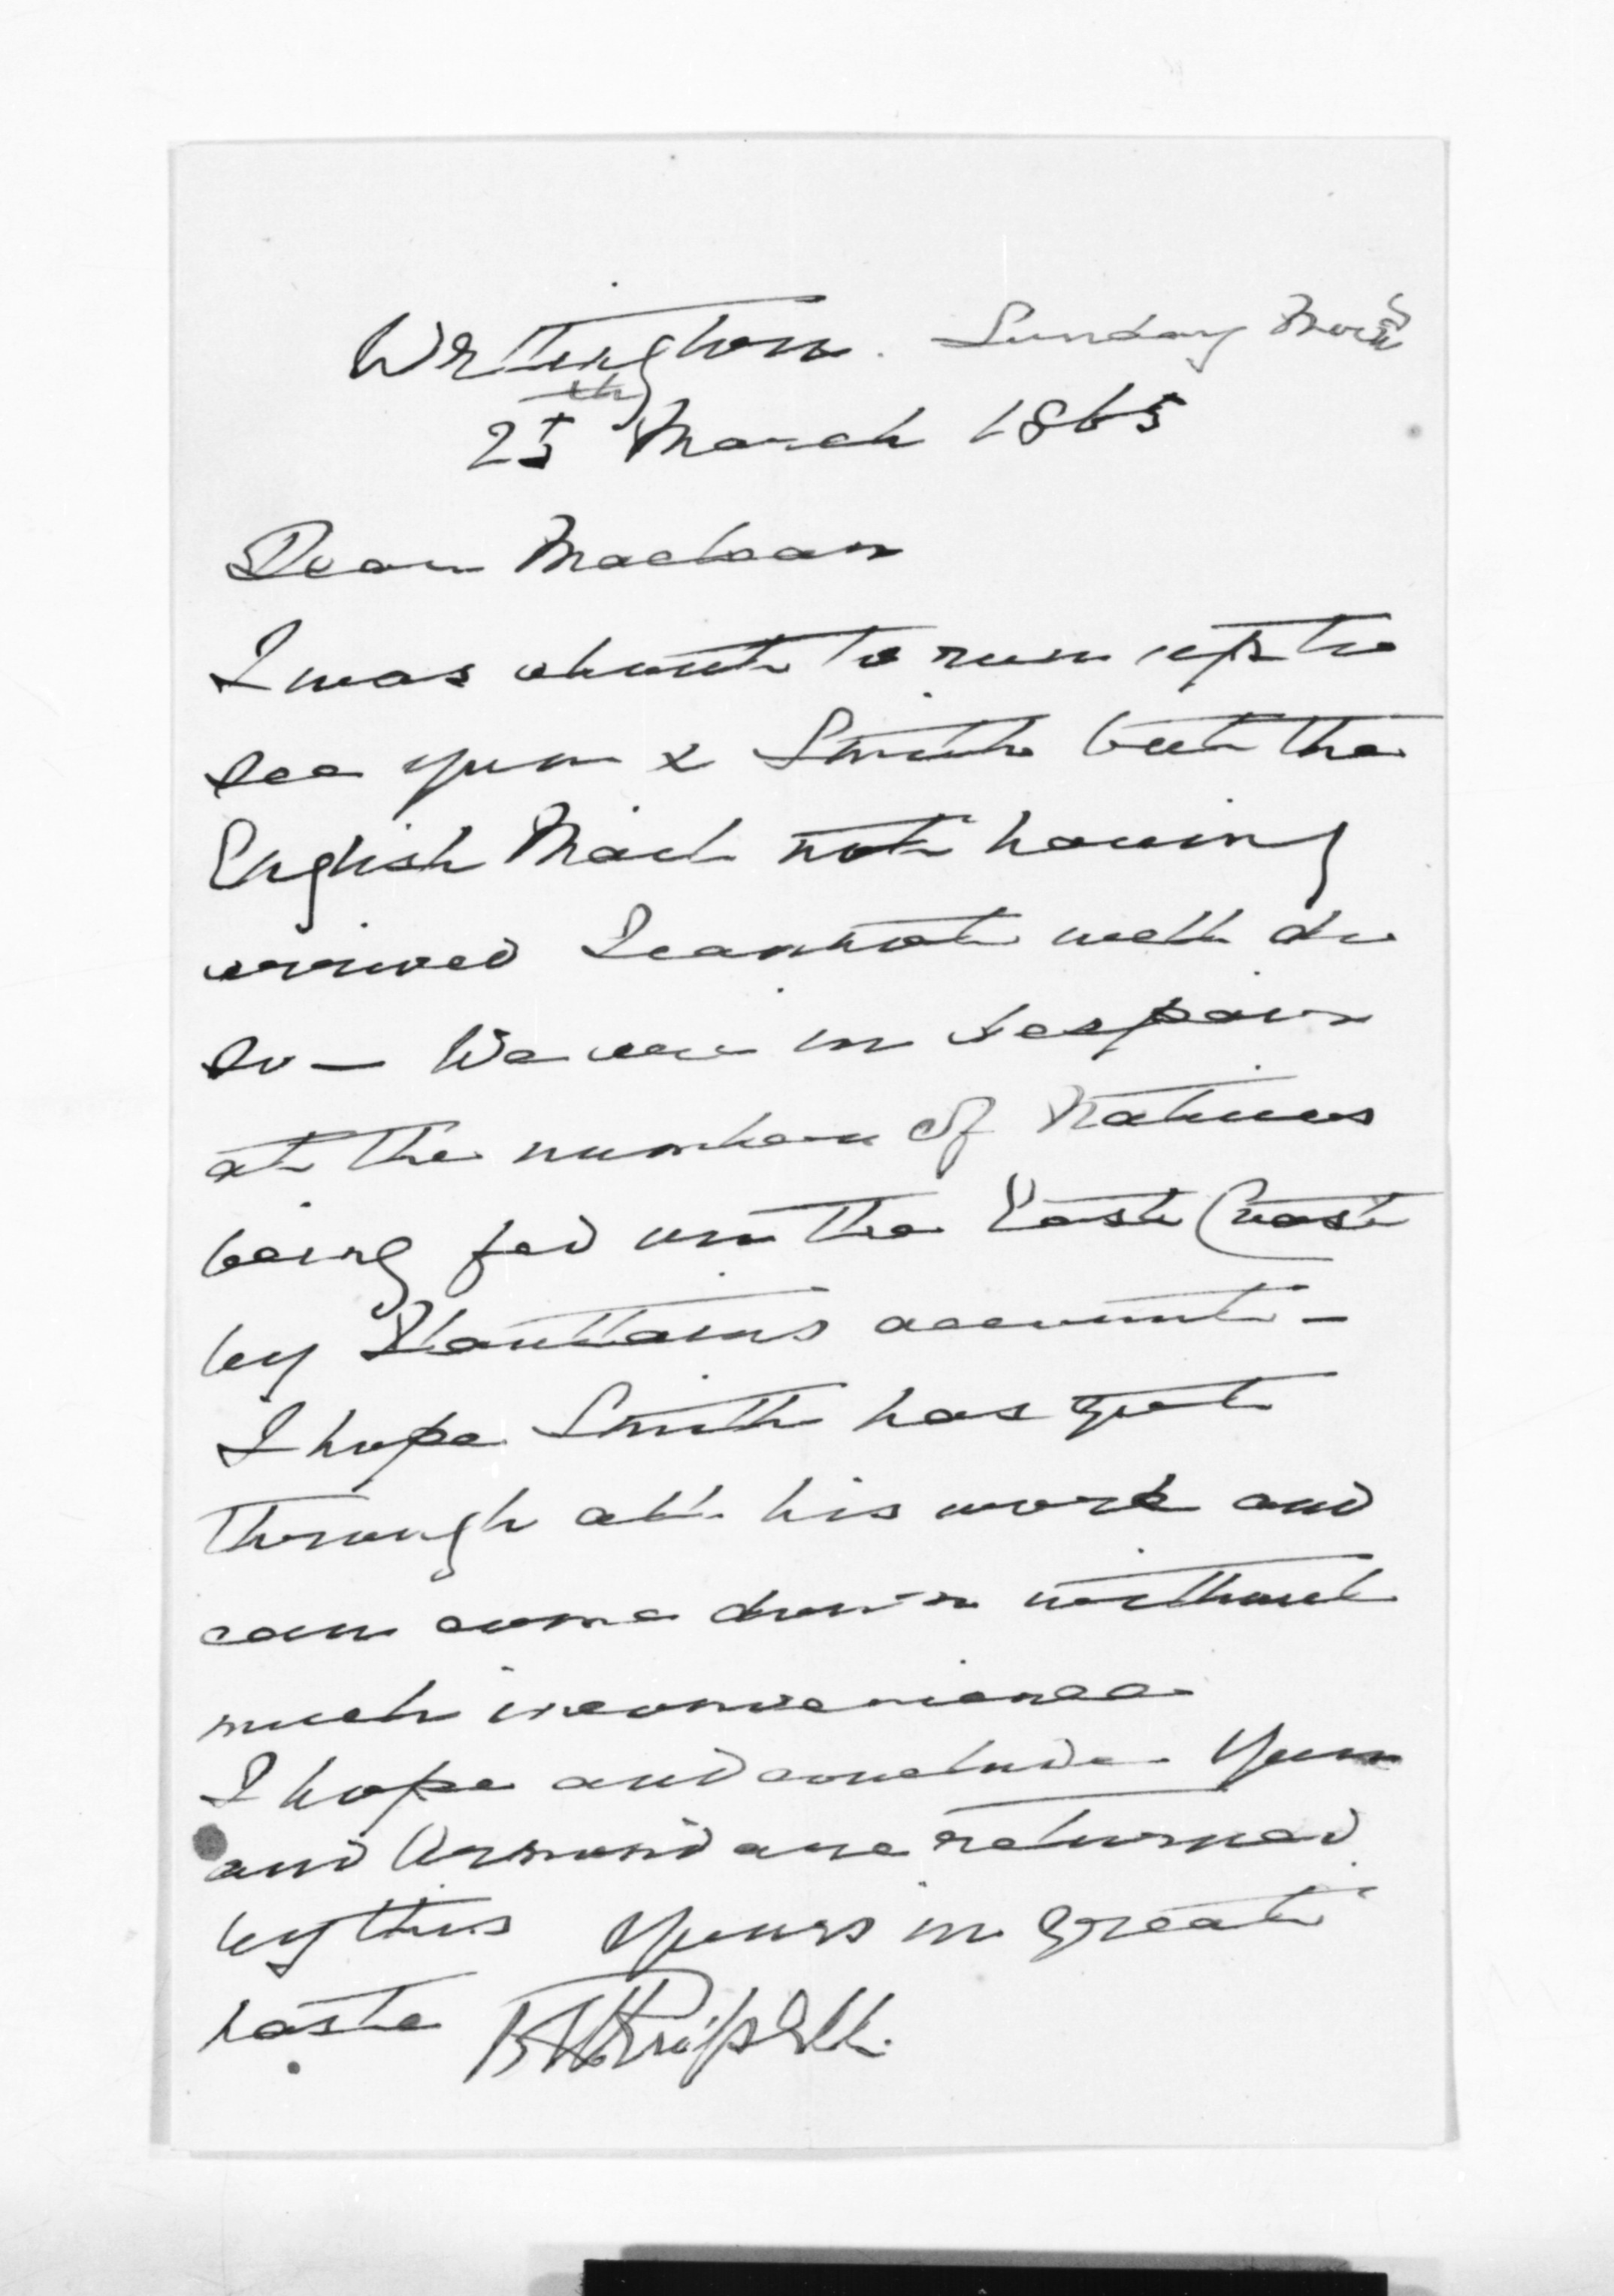 Wellington. Sunday Morng
25th March 1865
Dear Maclean
I was about to run up to
see you & Smith but the
English Mail not having
arrived I cannot well do
so — We are in despair
at the number of Natives
being fed on the East Coast
by Hamlin's account —
I hope Smith has got
through all his work and
can come down without
much inconvenience
I hope and conclude you
and Ormond are returned
by this Yours in great
haste